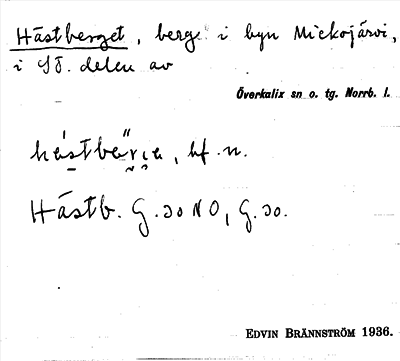 Hästberget, berg i byn Mickojärvi,
i SÖ. delen av
Överkalix sn o. tg. Norrb. l.
hf. n.
Hästb. G. 30 NO, G. 30.
EDVIN BRÄNNSTRÖM 1936.